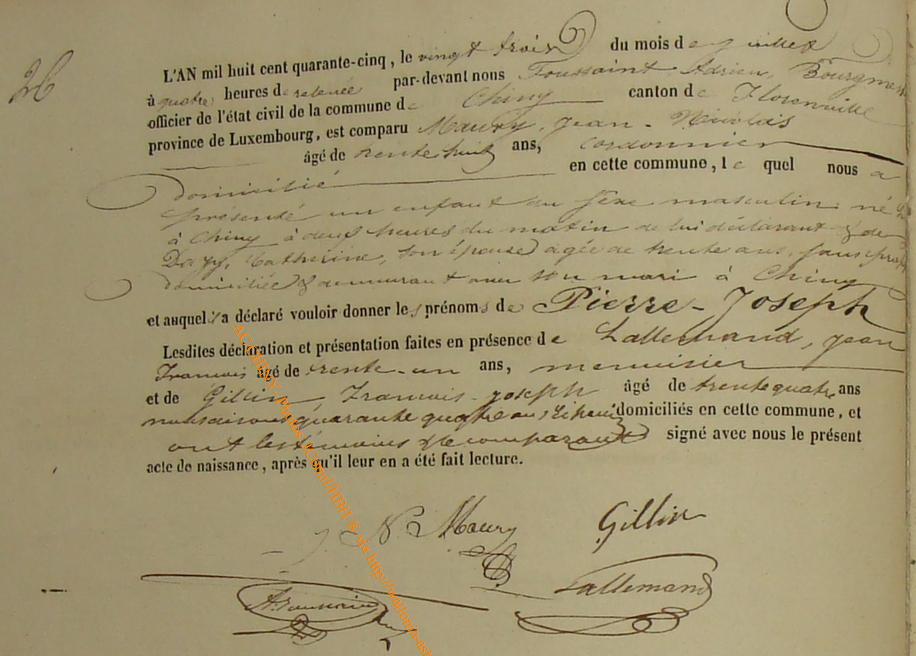 26
L'AN mil huit cent quarante-cinq, le vingt trois du mois de juillet
à quatre heures de relevée par-devant nous Toussaint Adrien, Bourgmestre
officier de l'état civil de la commune de Chiny canton de Florenville
province de Luxembourg, est comparu Maury, Jean-Nicolas
âgé de trente huit ans, cordonnier
domicilié en cette commune, le quel nous a
présenté un enfant du sexe masculin né
à Chiny à deux heures du matin de lui déclarant & de
Catherine, son épouse agée de trente ans, sans
domiciliée & demeurant avec son mari à Chiny
et auquel il a déclaré vouloir donner les prénoms de Pierre-Joseph
Lesdites déclaration et présentation faites en présence de Lallemand, Jean
François âgé de trente-un ans, menuisier
et de Gillin, François-Joseph âgé de trente quatre ans
quarante quatre ans domiciliés en cette commune, et
ont les témoins & le comparant signé avec nous le présent
acte de naissance, après qu'il leur en a été fait lecture.
J. N. Maury Gillin
Lallemand
A. Toussaint